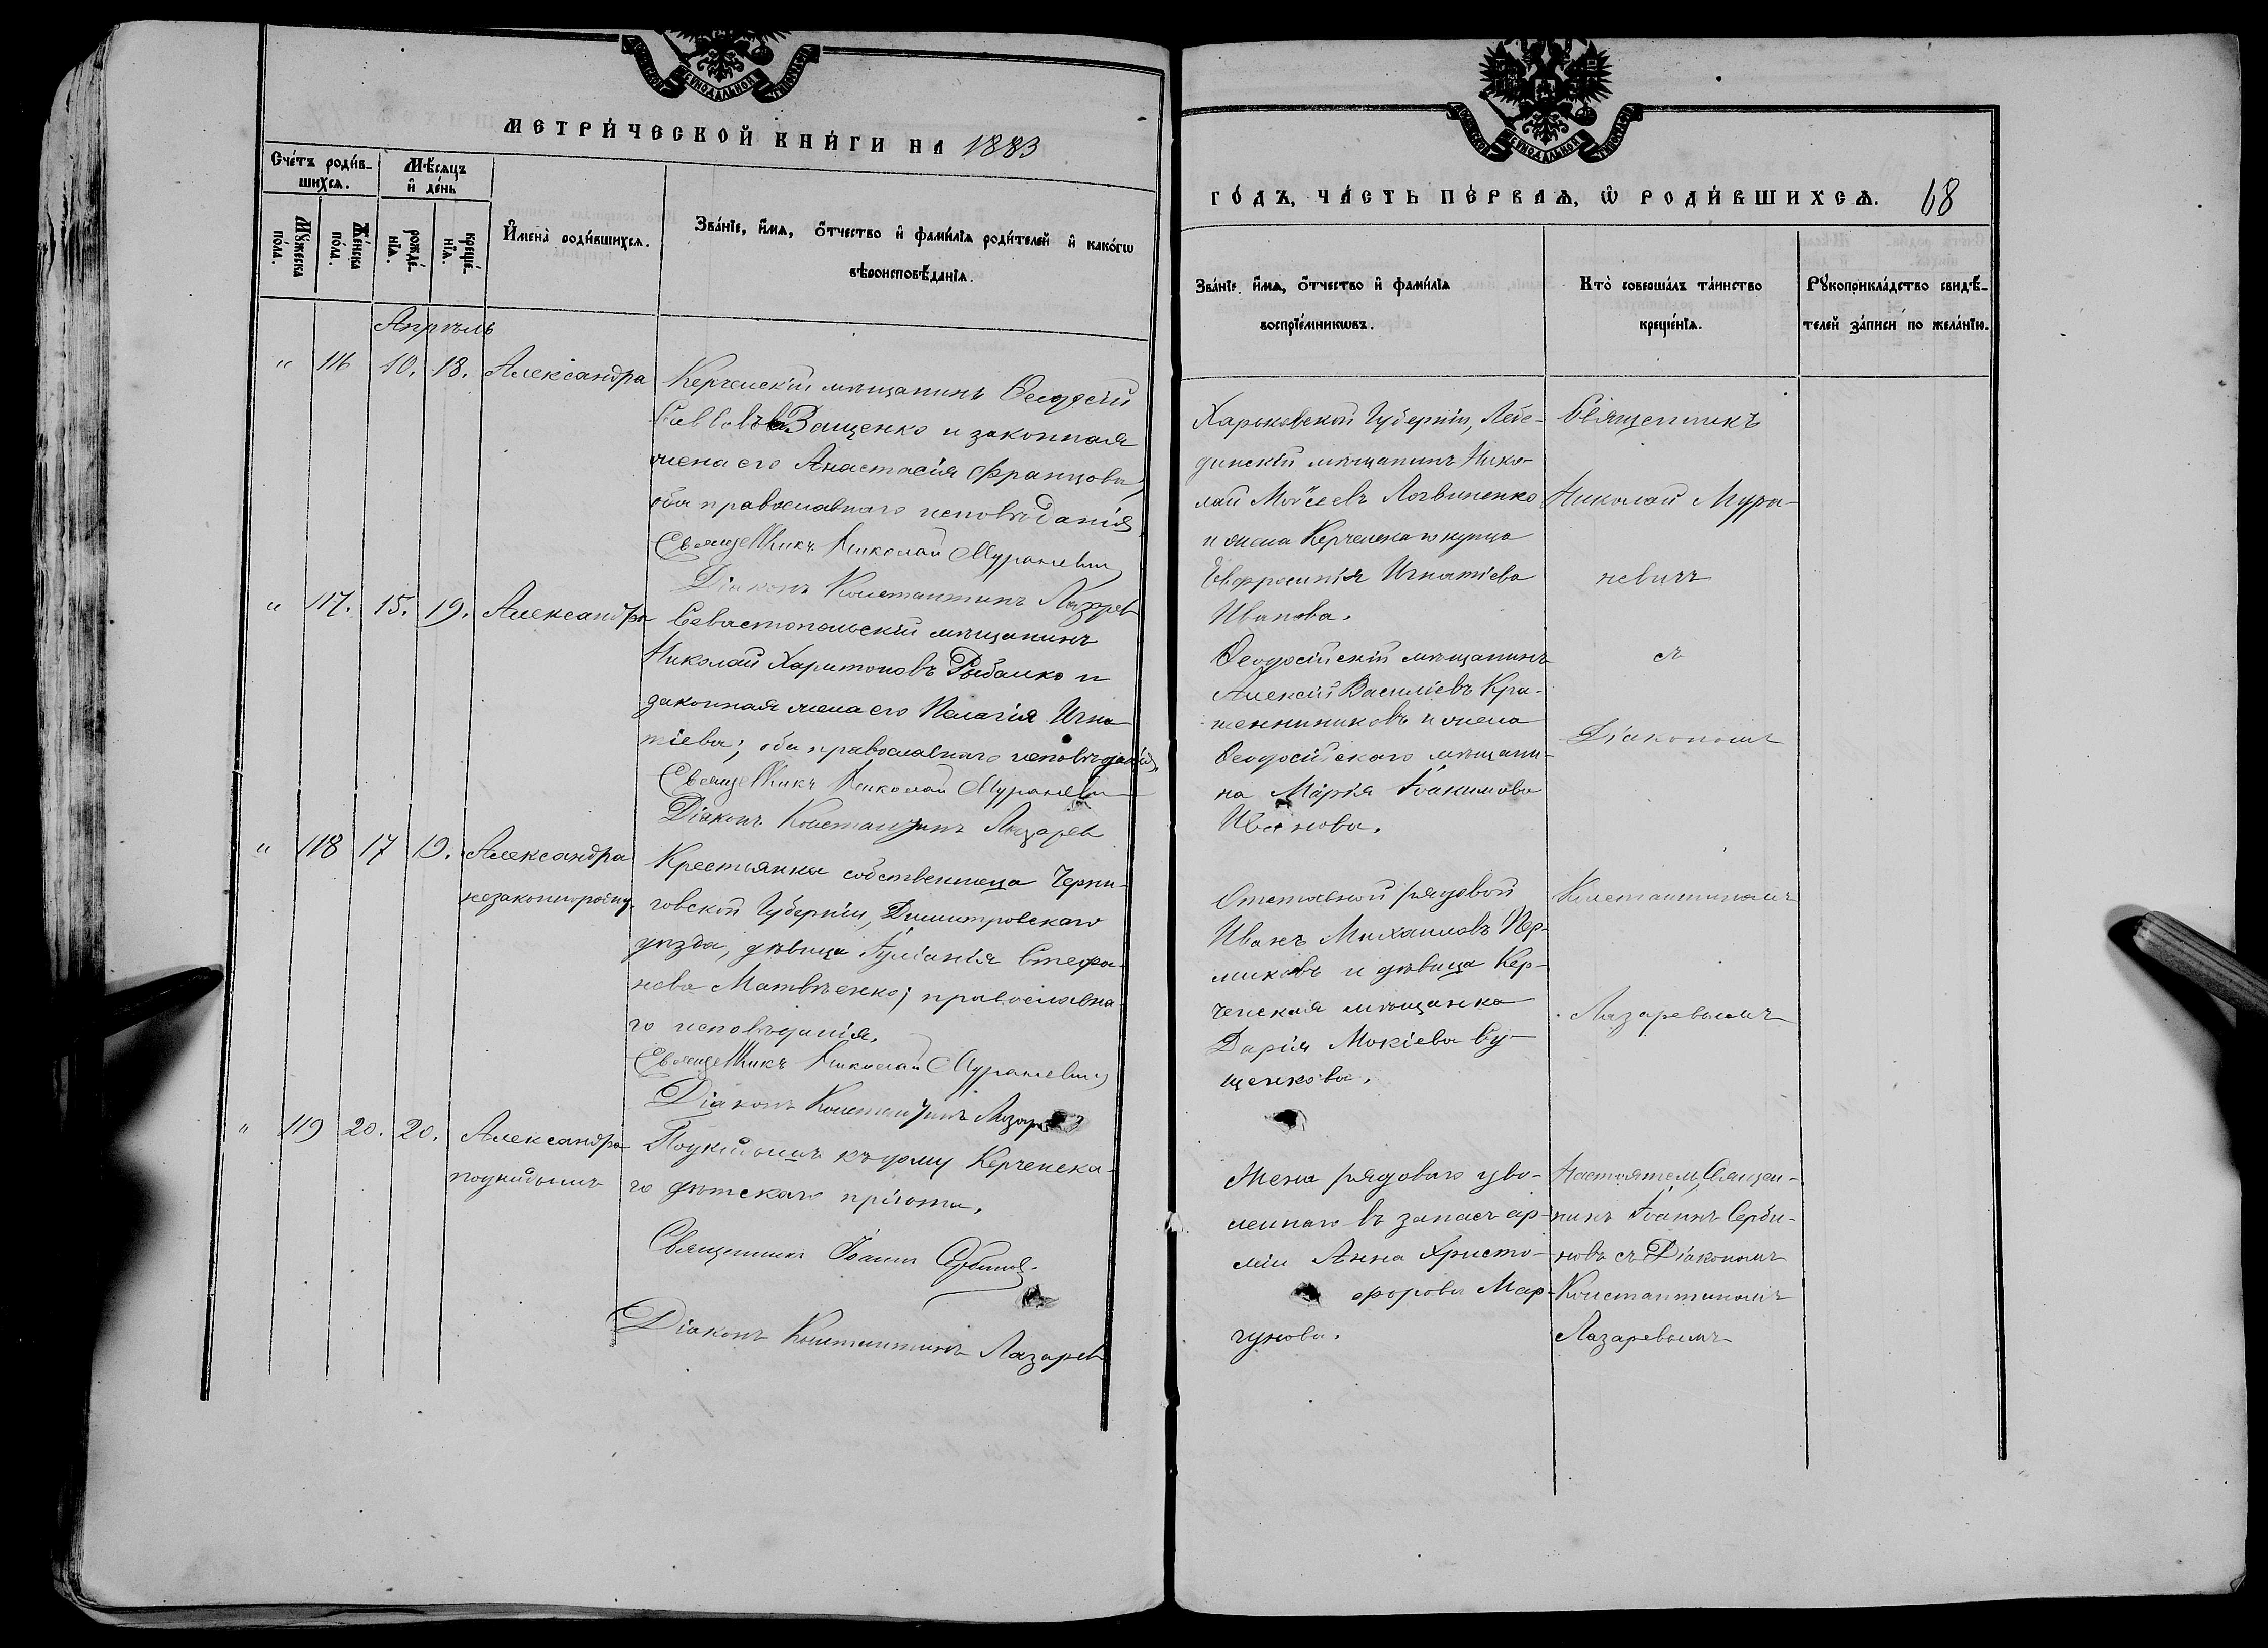 МЕТРИ́ЧЕСКОЙ КНИ́ГИ НА 1883
Сче́тъ роди́в-
шихсѧ.
Мѣ́сѧцъ
и҆ де́нь
Мꙋ́жеска
по́ла.
Же́нска
по́ла.
рожде́-
нїѧ.
креще́-
нїѧ.
И҆мена̀ роди́вшихсѧ.
Зва́нїе, и҆́мѧ, ѻ҆́тчество и҆ фами́лїѧ роди́телей и҆ како́гѡ
вѣроисповѣ́данїѧ.
Апрѣль
" 116 10. 18. Александра
Керченскій мѣщанинъ Ѳеодосій
Савовъ Ващенко и законная
жена его Анастасія Францова,
оба православнаго исповѣданія
Священникъ Николай Мураневич
Діаконъ Константинъ Лазарев
" 117. 15. 19. Александра
Севастопольскій мѣщанинъ
Николай Харитоновъ Рыбалко и
законная жена его Пелагія Игна
тіева; оба православнаго исповѣданія,
Священникъ Николай Мураневич
Діаконъ Константинъ Лазарев
" 118 17 19. Александра
незаконнорожд.
Крестьянка собственница Черни-
говской Губерніи, Димитровскаго
уѣзда, дѣвица Іуліанія Стефа-
нова Матвѣенко; православна-
го исповѣданія.
Священникъ Николай Мураневич
Діаконъ Константинъ Лазарев
" 119 20. 20. Александра
подкидышъ
Подкидышъ къ дому Керченска-
го дѣтскаго пріюта.
Священникъ Іоаннъ Сербинов.
Діаконъ Константинъ Лазарев
ГО́ДЪ, ЧА́СТЬ ПЕ́РВАѦ, Ѽ РОДИ́ВШИХСѦ. 68
Зва́нїе, и҆́мѧ, ѻ҆́тчество и҆ фами́лїѧ
воспрїе́мникѡвъ.
Кто̀ соверша́лъ та́инство
креще́нїѧ.
Рꙋкоприкла́дство свидѣ́-
телей за́писи по жела́нїю.
Харьковской Губерніи, Лебе-
динскій мѣщанинъ Нико-
лай Моисеевъ Логвиненко
и жена Керченскаго купца
Евфросинія Игнатіева
Иванова.
Священникъ
Николай Мура-
невичъ
съ
Діакономъ
Константиномъ
Лазаревымъ
Ѳеодосійскій мѣщанинъ
Алексій Василіевъ Кра-
шенниниковъ и жена
Ѳеодосійскаго мѣщани-
на Марія Іоакимова
Иванова.
Отставной рядовой
Иванъ Михаиловъ Пер-
миковъ и дѣвица Кер-
ченская мѣщанка
Дарія Мокіева Су-
щенкова.
Жена рядоваго уво-
леннаго въ запасъ ар-
міи Анна Христо-
форова Мар-
гунова.
Настоятель, Священ-
никъ Іоаннъ Серби-
новъ съ Діакономъ
Константиномъ
Лазаревымъ